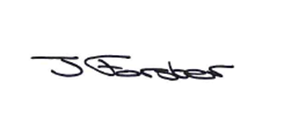 J Forster